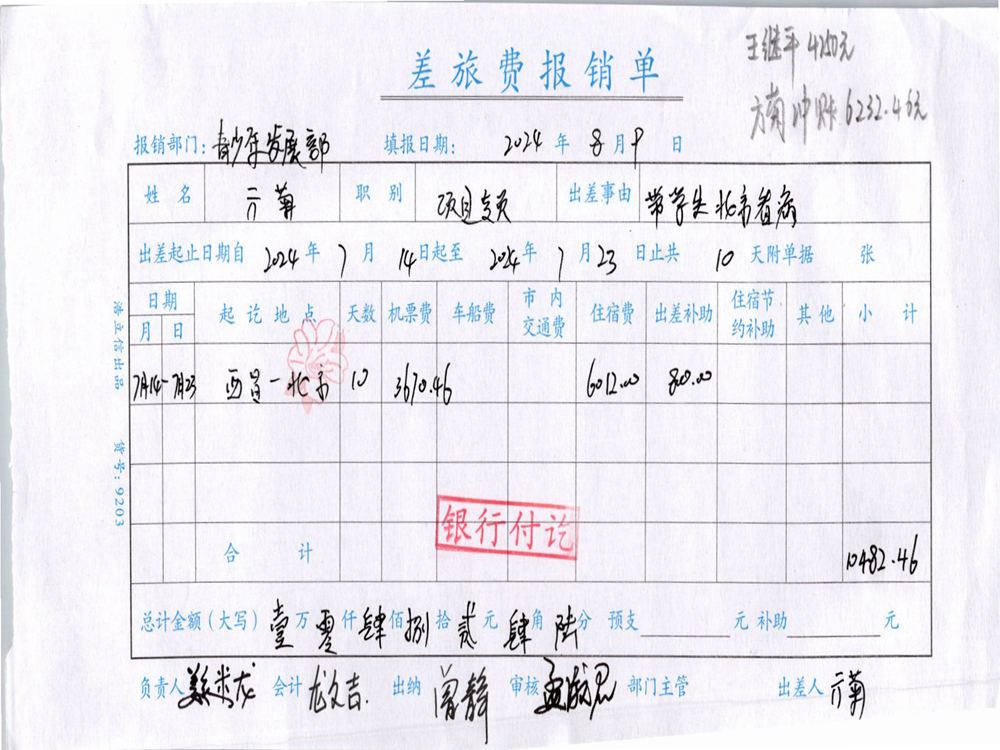 王继平 4250元
方菊冲账 6232.46元
差旅费报销单
报销部门：青少年发展部 填报日期： 2024 年 8 月 9 日
姓名 方菊 职别 项目专员 出差事由 带学生北京看病
出差起止日期自 2024 年 7 月 14 日起至 2024 年 7 月 23 日止共 10 天附单据 张
日期 起讫地点 天数 机票费 车船费 市内交通费 住宿费 出差补助 住宿节约补助 其他 小计
月 日
7月14-7月23 西昌-北京 10 3670.46 6012.00 800.00
银行付讫
合计 10482.46
总计金额（大写） 壹万零仟肆佰捌拾贰元肆角陆分 预支 元 补助 元
负责人 会计 龙文吉. 出纳 曾静 审核 部门主管 出差人 方菊
浩立信出品 货号：9203